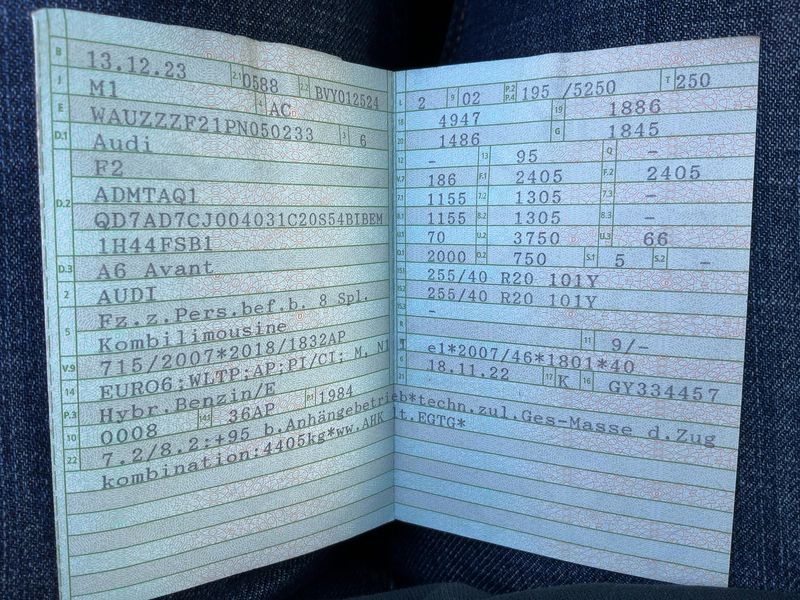 B 13.12.23 2.1 0588 2.2 BVY012524
J M1 4 AC
E WAUZZZF21PN050233 3 6
D.1 Audi
F2
D.2 ADMTAQ1
QD7AD7CJ004031C20S54BIBEM
1H44FSB1
D.3 A6 Avant
2 AUDI
5 Fz.z.Pers.bef.b. 8 Spl.
Kombilimousine
V.9 715/2007*2018/1832AP
14 EURO6;WLTP;AP;PI/CI; M, N1
P.3 Hybr.Benzin/E P.1 1984
10 0008 14.1 36AP
22 7.2/8.2:+95 b.Anhängebetrieb*techn.zul.Ges-Masse d.Zug
kombination:4405kg*ww.AHK lt.EGTG*
L 2 9 02 P.2 P.4 195 /5250 T 250
18 4947 19 1886
20 1486 G 1845
12 - 13 95 Q -
V.7 186 F.1 2405 F.2 2405
7.1 1155 7.2 1305 7.3 -
8.1 1155 8.2 1305 8.3 -
U.1 70 U.2 3750 U.3 66
O.1 2000 O.2 750 S.1 5 S.2 -
15.1 255/40 R20 101Y
15.2 255/40 R20 101Y
15.3 -
R 11 9/-
K e1*2007/46*1801*40
6 18.11.22 17 K 16 GY334457
21